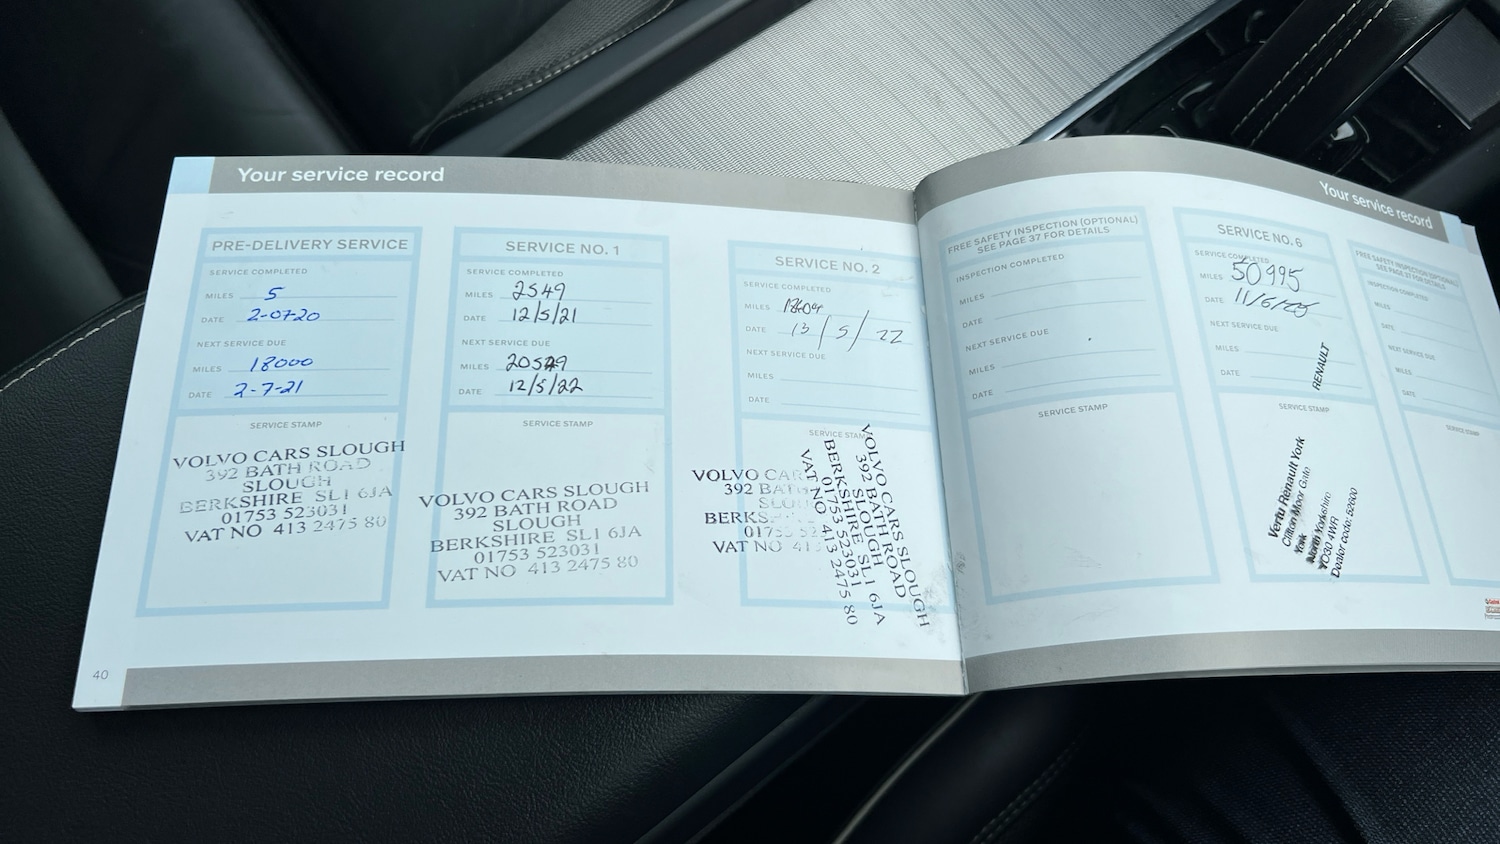 Your service record
PRE-DELIVERY SERVICE
SERVICE COMPLETED
MILES 5
DATE 2-07-20
NEXT SERVICE DUE
MILES 18000
DATE 2-7-21
SERVICE STAMP
VOLVO CARS SLOUGH
392 BATH ROAD
SLOUGH
BERKSHIRE SL1 6JA
01753 523031
VAT NO 413 2475 80
40
SERVICE NO. 1
SERVICE COMPLETED
MILES 2549
DATE 12/5/21
NEXT SERVICE DUE
MILES 20549
DATE 12/5/22
SERVICE STAMP
VOLVO CARS SLOUGH
392 BATH ROAD
SLOUGH
BERKSHIRE SL1 6JA
01753 523031
VAT NO 413 2475 80
SERVICE NO. 2
SERVICE COMPLETED
MILES
DATE 13/5/22
NEXT SERVICE DUE
MILES
DATE
SERVICE STAMP
VOLVO CAR
392 BATH
SLOU
BERKS
01753 523
VAT NO 413
VOLVO CARS SLOUGH
392 BATH ROAD
SLOUGH
BERKSHIRE SL1 6JA
01753 523031
VAT NO 413 2475 80
Your service record
FREE SAFETY INSPECTION (OPTIONAL)
SEE PAGE 37 FOR DETAILS
INSPECTION COMPLETED
MILES
DATE
NEXT SERVICE DUE
MILES
DATE
SERVICE STAMP
SERVICE NO. 6
SERVICE COMPLETED
MILES 50995
DATE 11/6/25
NEXT SERVICE DUE
MILES
DATE
RENAULT
SERVICE STAMP
Vertu Renault York
Clifton Moor Gate
York
North Yorkshire
YO30 4WR
Dealer code: 52600
FREE SAFETY INSPECTION (OPTIONAL)
SEE PAGE 37 FOR DETAILS
INSPECTION COMPLETED
MILES
DATE
NEXT SERVICE DUE
MILES
DATE
SERVICE STAMP